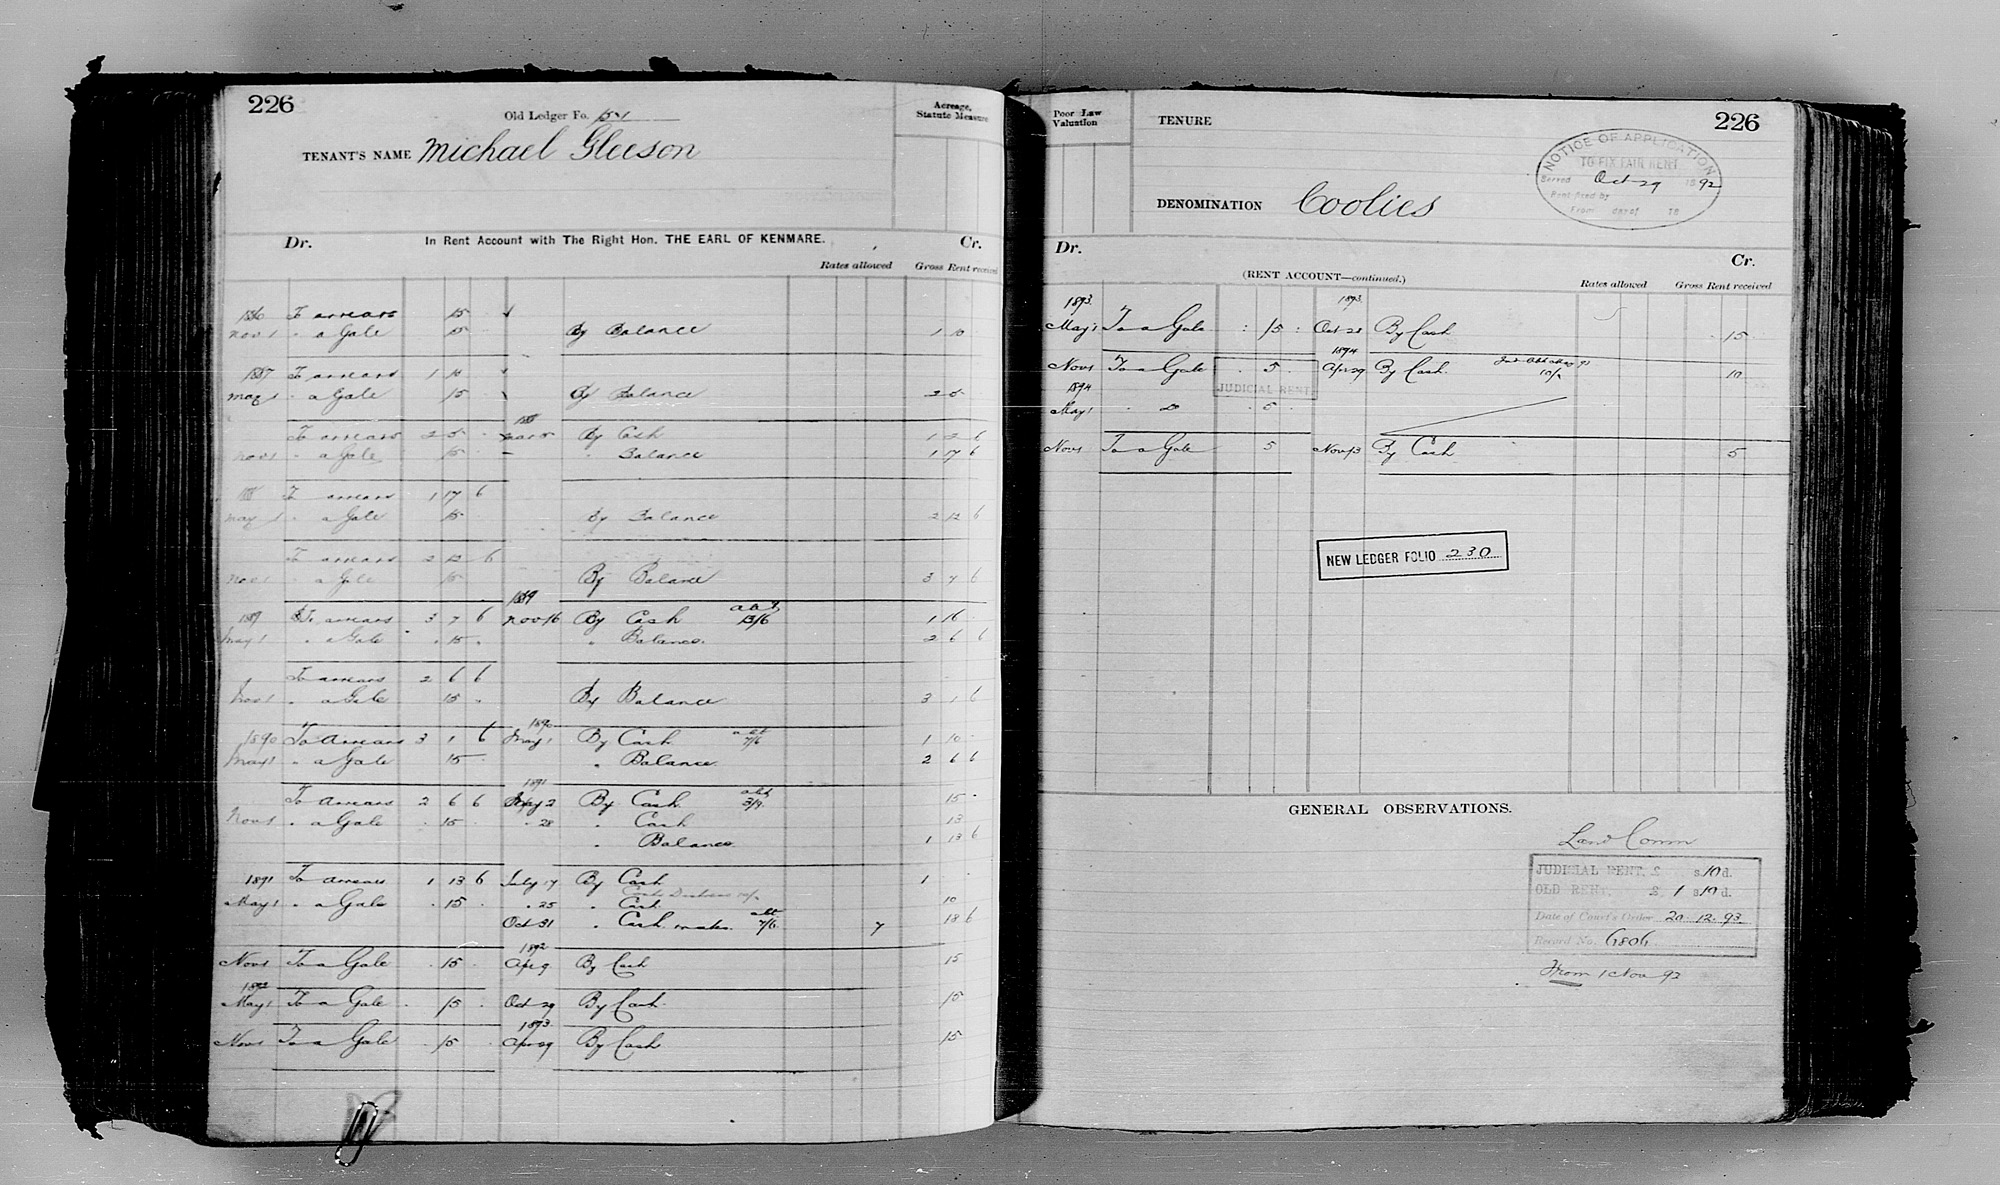 226
Old Ledger Fo. 151
TENANT'S NAME Michael Gleeson
Acreage,
Statute Measure
Dr. In Rent Account with The Right Hon. THE EARL OF KENMARE. Cr.
Rates allowed Gross Rent received
1886 To arrears 15
Nov 1 " a Gale 15 By Balance 1 10
1887 To arrears 1 10
May 1 " a Gale 15 By Balance 2 5
To arrears 2 5 By Cash 1 2 6
Nov 1 " a Gale 15 " Balance 1 17 6
To arrears 1 17 6
May 1 " a Gale 15 By Balance 2 12 6
To arrears 2 12 6
Nov 1 " a Gale 15 By Balance 3 7 6
1889
To arrears 3 7 6 Nov 16 By Cash 13/6 1 16
May 1 " a Gale 15 " Balance 2 6 6
To arrears 2 6 6
Nov 1 " a Gale 15 By Balance 3 1 6
1890
1890 To Arrears 3 1 6 May 1 By Cash abt 7/6 1 10
May 1 " a Gale 15 " Balance 2 6 6
1891
To Arrears 2 6 6 May 2 By Cash abt 3/9 15
Nov 1 " a Gale 15 " 28 " Cash 13
" Balance 1 13 6
1891 To Arrears 1 13 6 July 17 By Cash 1
May 1 " a Gale 15 " 25 " Cash 10
Oct 31 " Cash abt 7/6 7 18 6
1892
Nov 1 To a Gale 15 Apr 9 By Cash 15
1892
May 1 To a Gale 15 Oct 29 By Cash 15
1893
Nov 1 To a Gale 15 Apr 29 By Cash 15
Poor Law
Valuation
TENURE
226
NOTICE OF APPLICATION
TO FIX FAIR RENT
Served Oct 29 1892
Rent fixed by
From day of 18
DENOMINATION Coolies
Dr. Cr.
(RENT ACCOUNT—continued.)
Rates allowed Gross Rent received
1893 1893
May 1 To a Gale 15 Oct 28 By Cash 15
1894
Nov 1 To a Gale 5 Apr 29 By Cash 10/- 10
JUDICIAL RENT
1894
May 1 " Do 5
Nov 1 To a Gale 5 Nov 13 By Cash 5
NEW LEDGER FOLIO 230
GENERAL OBSERVATIONS.
Land Comm
JUDICIAL RENT, £ s. 10 d.
OLD RENT, £ 1 s. 10 d.
Date of Court's Order 20.12.93
Record No. 6806
From 1 Nov 92